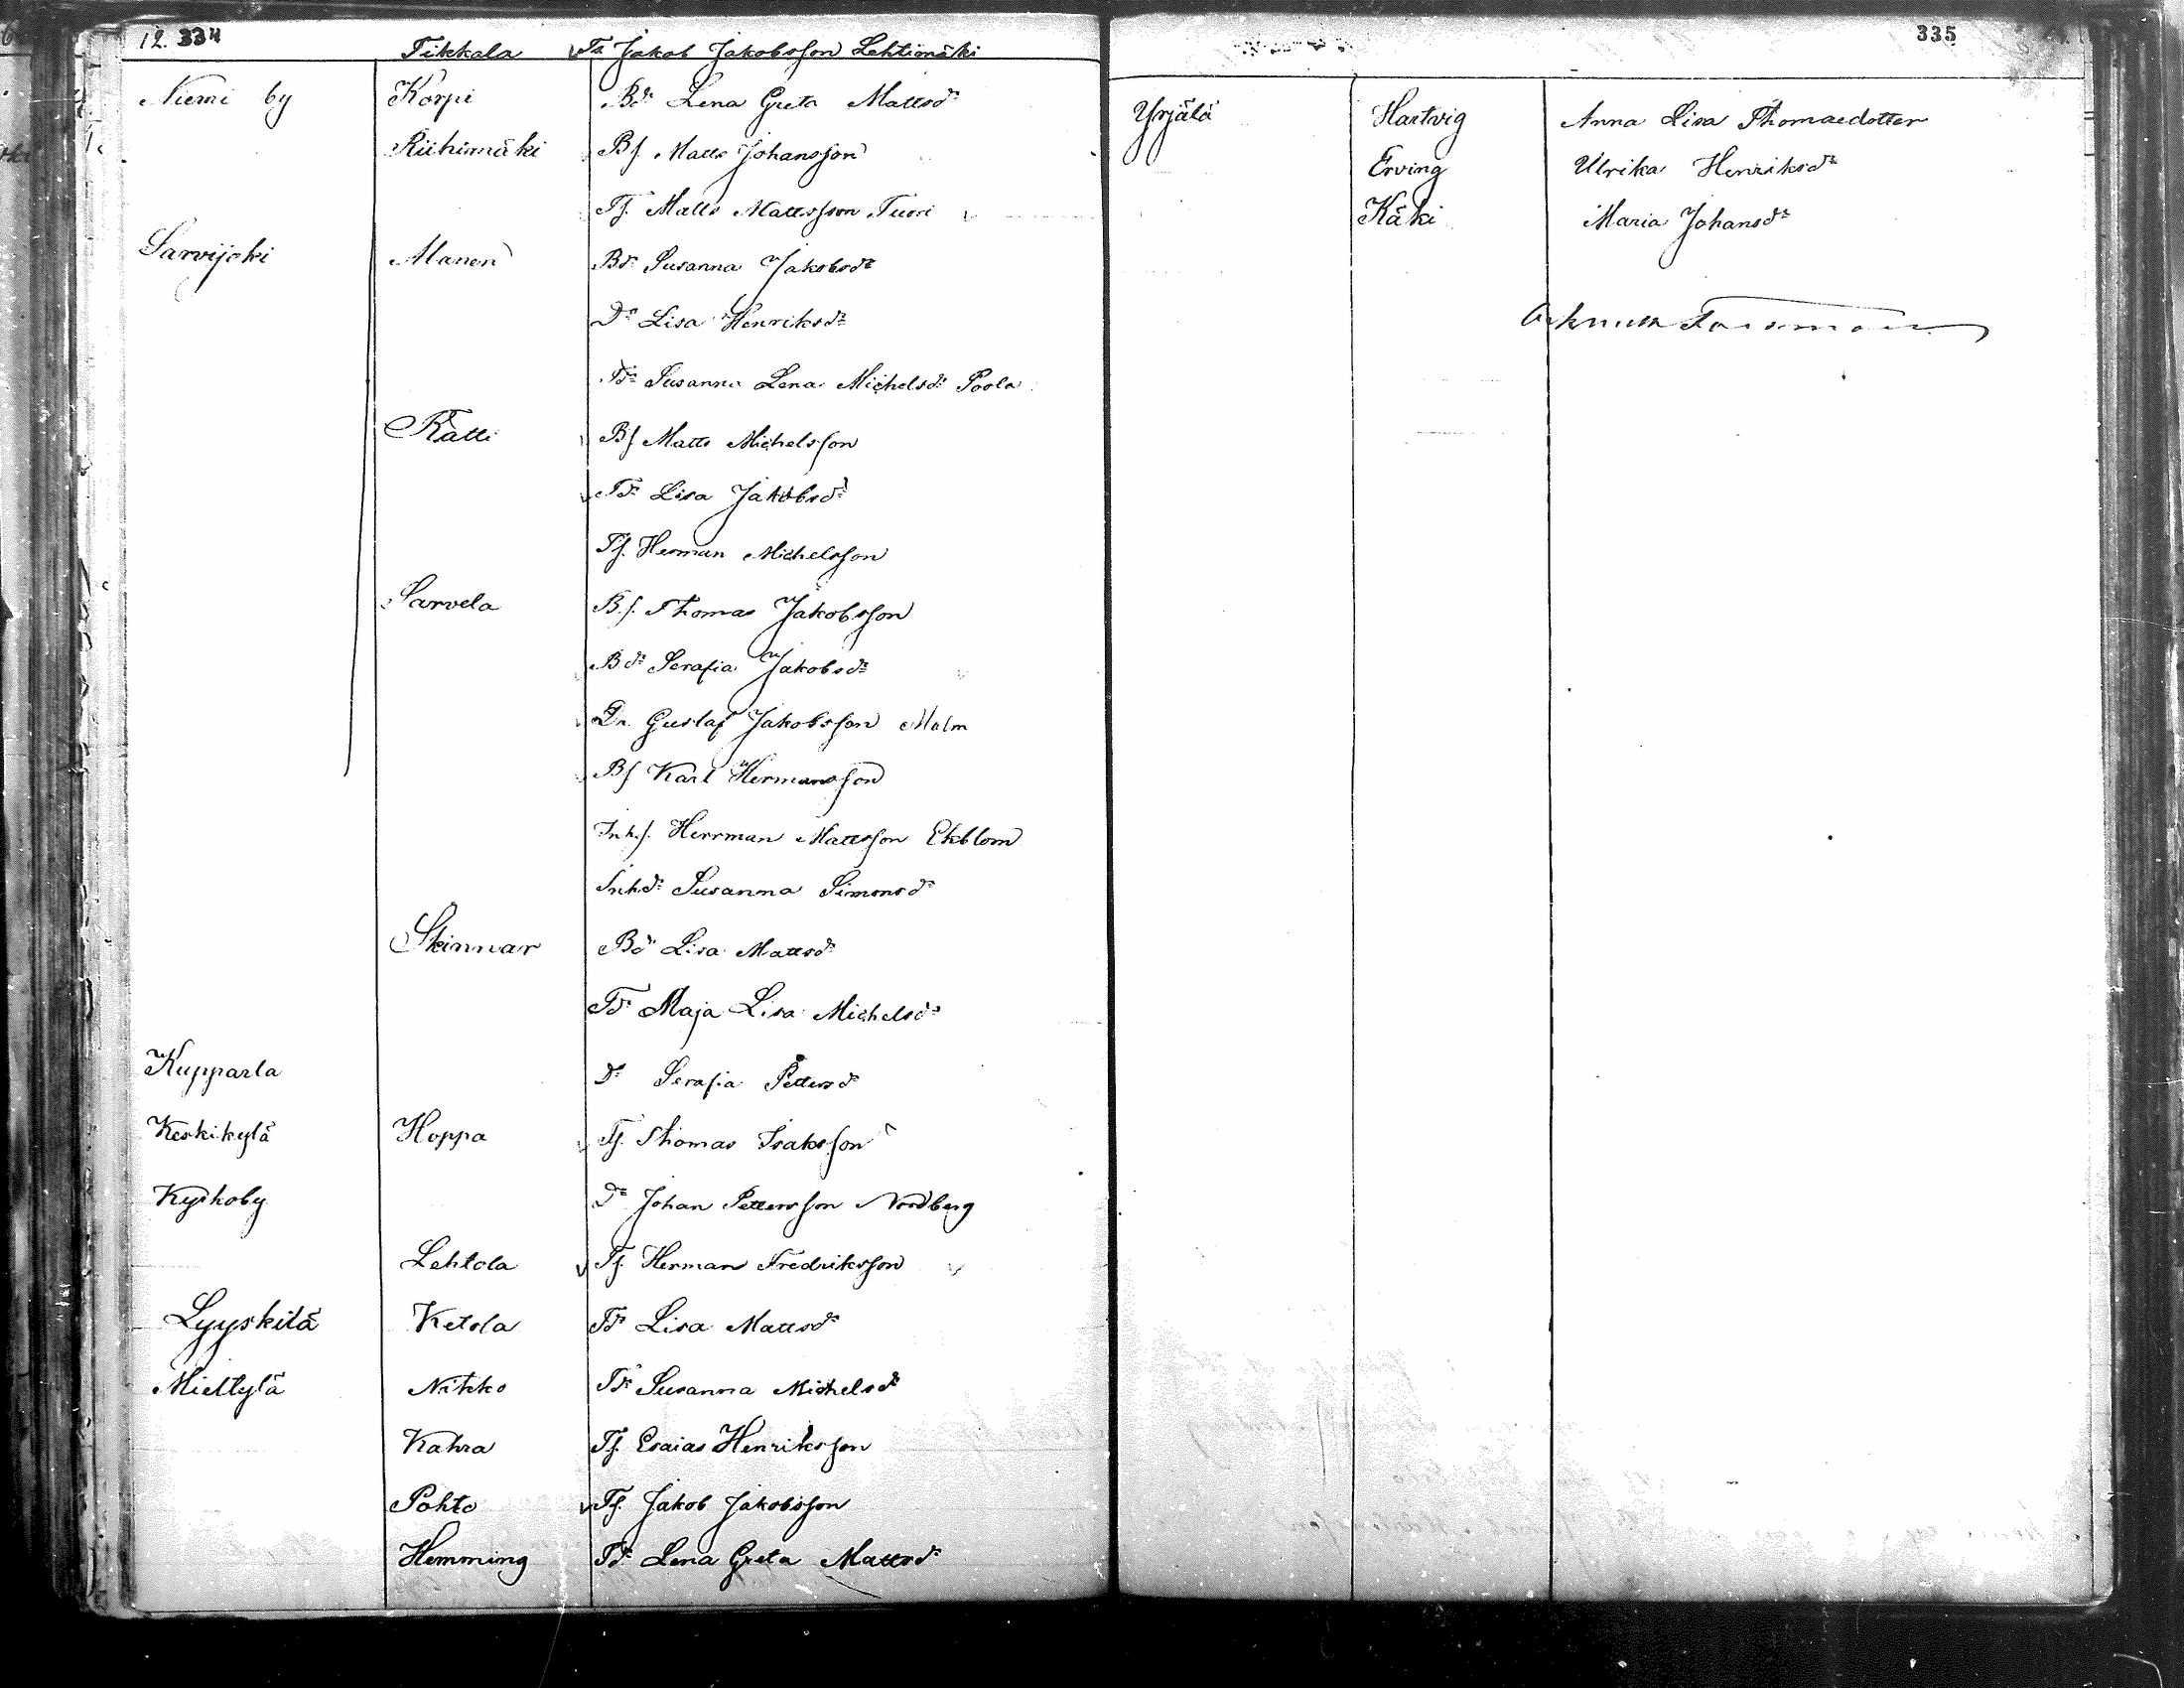 12. 334
Tikkala Ts. Jakob Jakobsson Lehtimäki
Niemi by Korpi Bdr Lena Greta Mattsdr
Riihimäki Bs. Matts Johansson
Ts. Matts Mattsson Tuori
Sarvijoki Alanen Bdr Susanna Jakobsdr
Dr Lisa Henriksdr
Tdr Susanna Lena Michelsdr Poola
Ratti Bs Matts Michelsson
Tdr Lisa Jakobsdr
Ts. Herman Michelsson
Sarvela B.s. Thomas Jakobsson
Bdr Serafia Jakobsdr
Dr. Gustaf Jakobsson Malm
Bs Karl Hermansson
Inh.s. Herrman Mattsson Ekblom
Inh.dr Susanna Simonsdr
Skinnar Bdr Lisa Mattsdr
Tdr Maja Lisa Michelsdr
Kupparla Dr Serafia Pettersdr
Keskikylä Hoppa Ts. Thomas Isaksson
Kyrkoby Dr Johan Pettersson Nordberg
Lehtola Ts. Herman Fredriksson
Lyyskilä Ketola Tdr Lisa Mattsdr
Miettylä Nikko Tdr Susanna Michelsdr
Kahra Ts. Esaias Henriksson
Pohto Ts. Jakob Jakobsson
Hemming Tdr Lena Greta Mattsdr
335
Yrjälä Hartvig Anna Lisa Thomaedotter
Erving Ulrika Henriksdr
Käki Maria Johansdr